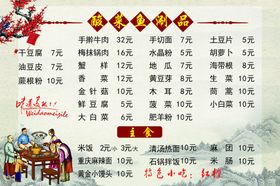 酸菜鱼涮品
手擀牛肉 32元 手切面 7元 土豆片 5元
干豆腐 7元 梅抹锅肉 16元 水晶粉 5元 胡萝卜 5元
油豆皮 7元 蟹样 12元 地瓜 7元 海带根 8元
蕨根粉 10元 香菜 12元 黄豆芽 8元 生菜 10元
金针菇 10元 木耳 8元 茼蒿 10元
鲜豆腐 5元 菠菜 10元 小白菜 10元
大白菜 6元 肥羊粉 10元
味道美极了
Weidaomeijile
主食
米饭 2元小 3元大 清汤热面 10元 麻团 10元
重庆麻辣面 10元 石锅拌饭 10元 米肠 10元
黄金小馒头 10元 特色小吃：红柳